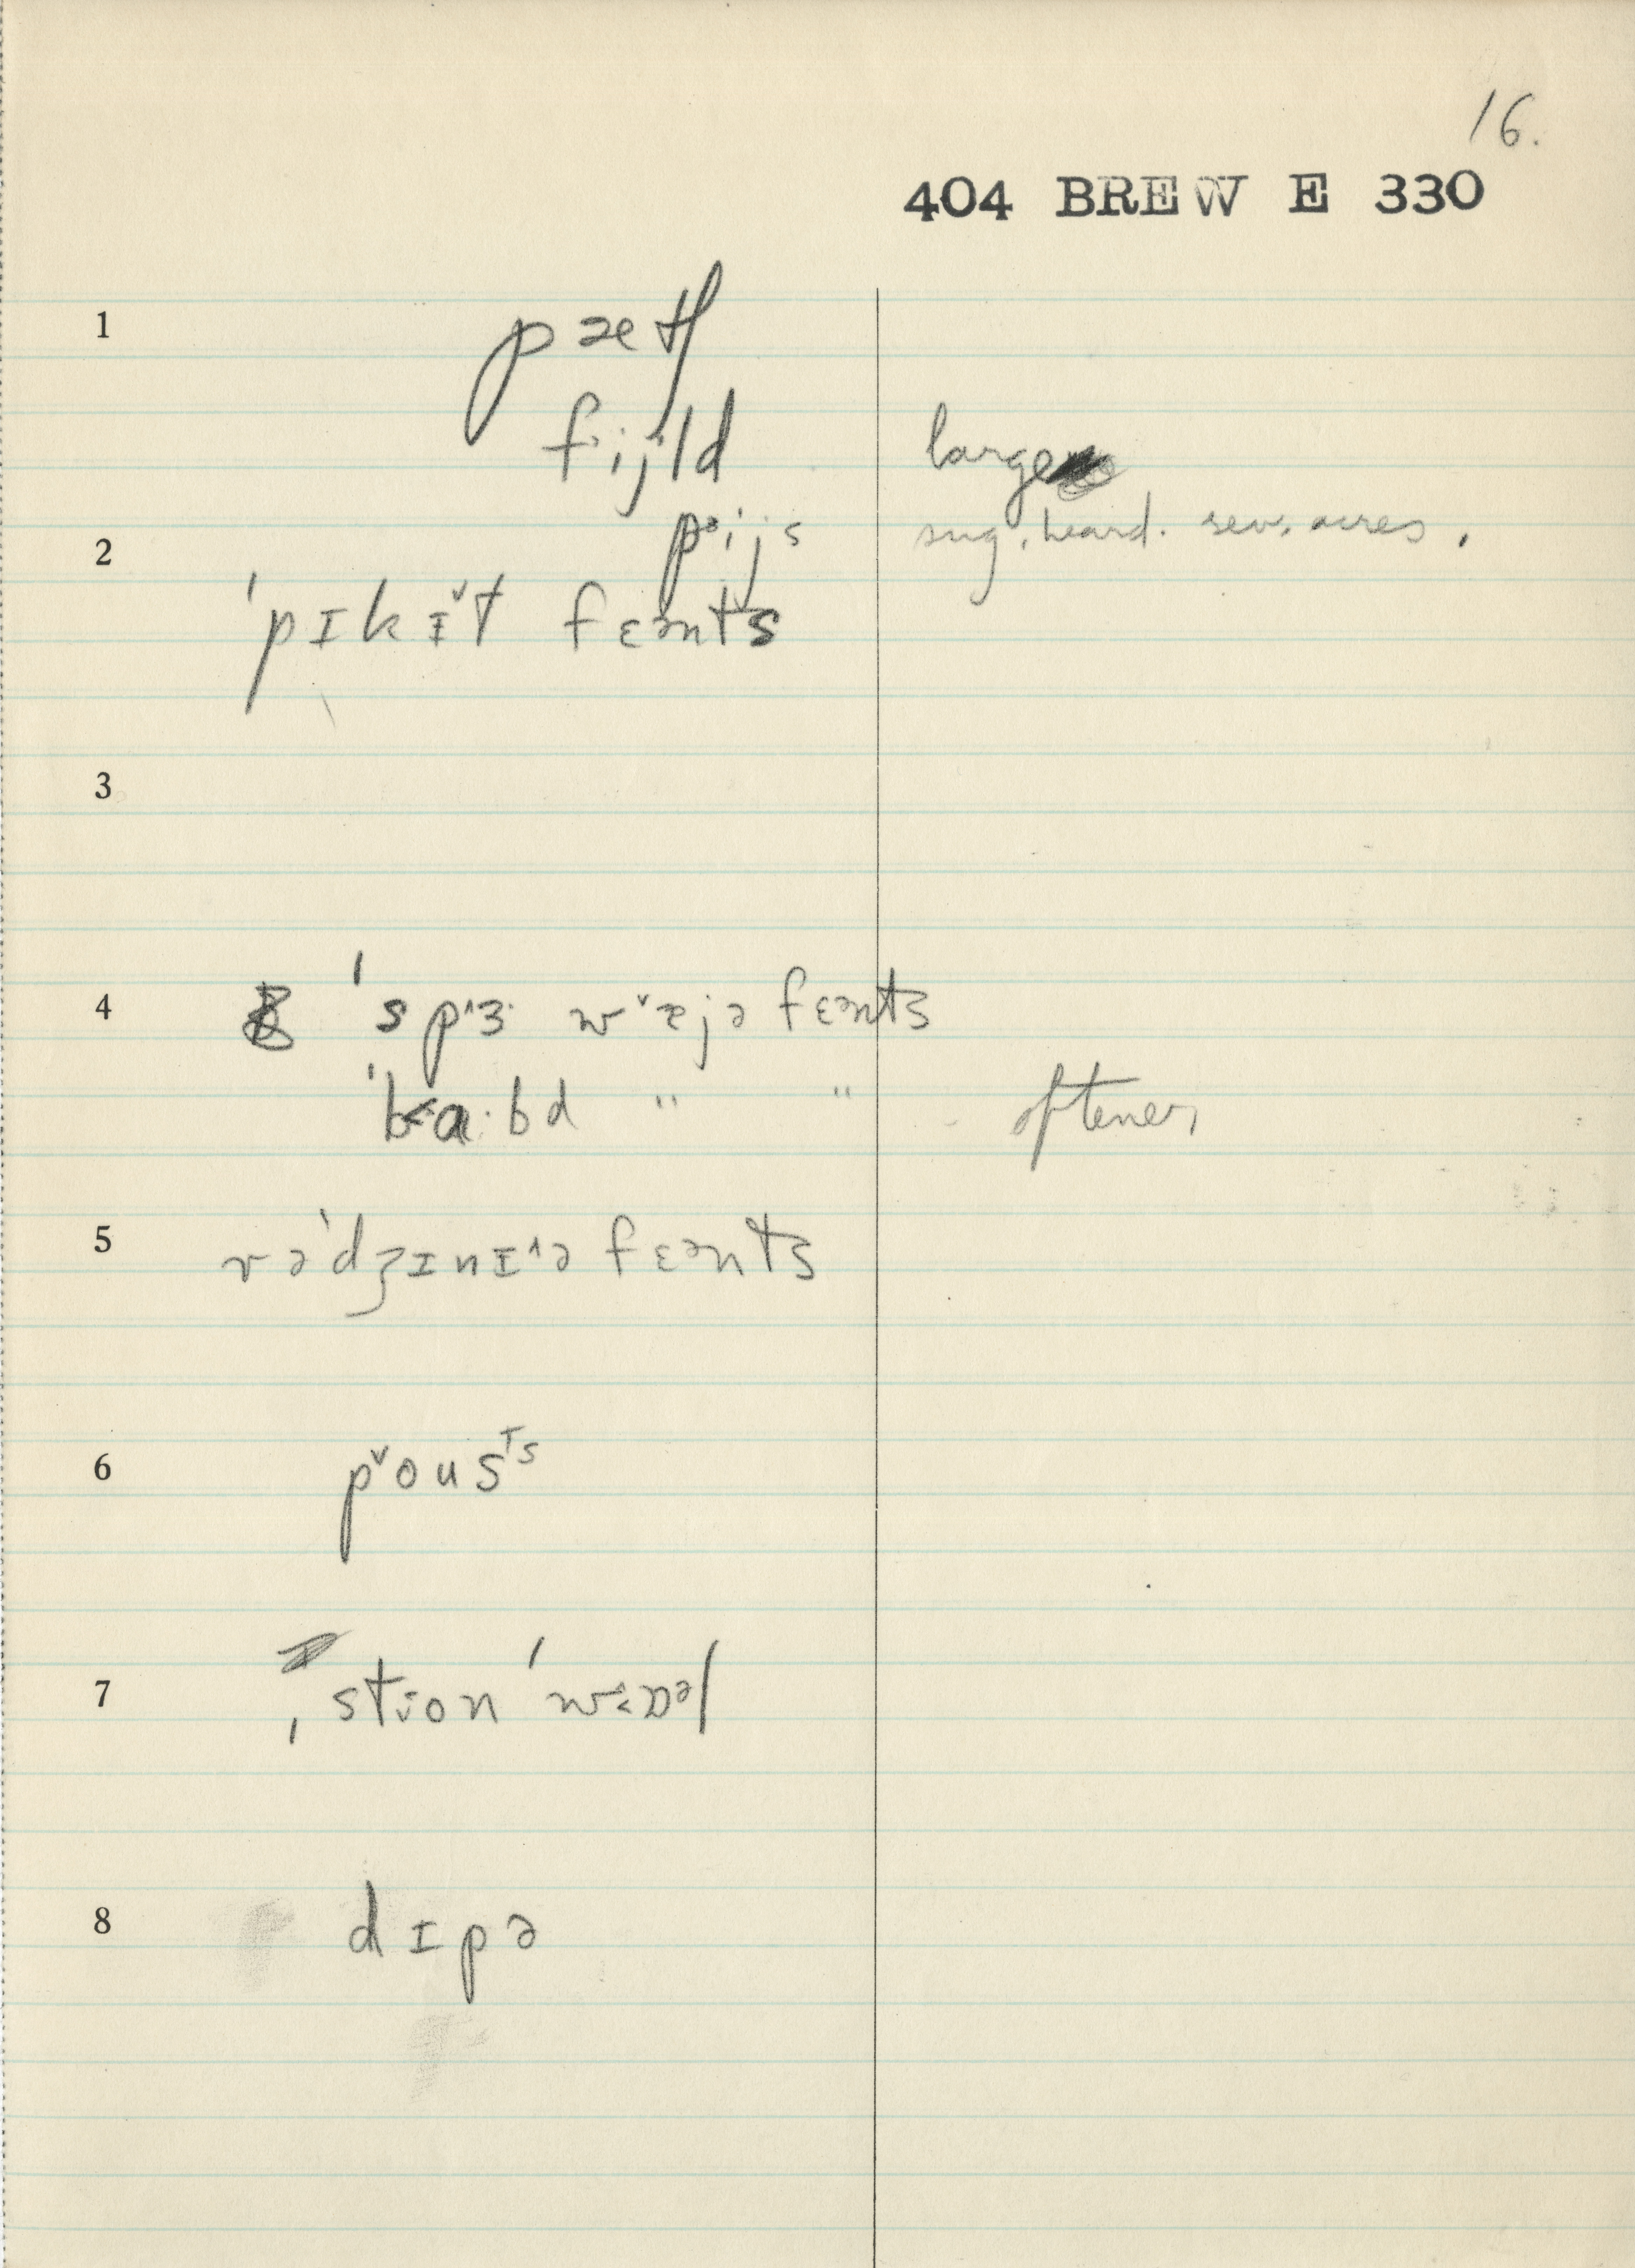 16.
404 BREW E 330
1 pætʃ
fijld large
pᵊijs sug. heard. sev. acres.
2
ˈpɪkɪ̌t fɛənts
3
4 ˈspɜ wæjə fɛənts
ˈba·bd " " oftener
5 rəˈdʒɪnɪ^ə fɛənts
6 pᵛousᵀˢ
7 ˌstion ˈwɒəl
8 dɪpə